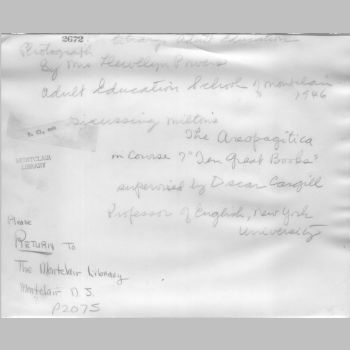 2672
Library Adult Education
Photograph
By Mrs Llewellyn Powers
Adult Education School of Montclair
1946
Discussing Milton's
The Areopagitica
in Course 7 "Ten Great Books"
supervised by Oscar Cargill
Professor of English, New York
University
MONTCLAIR
LIBRARY
Please
RETURN To
The Montclair Library
Montclair N.J.
P2075